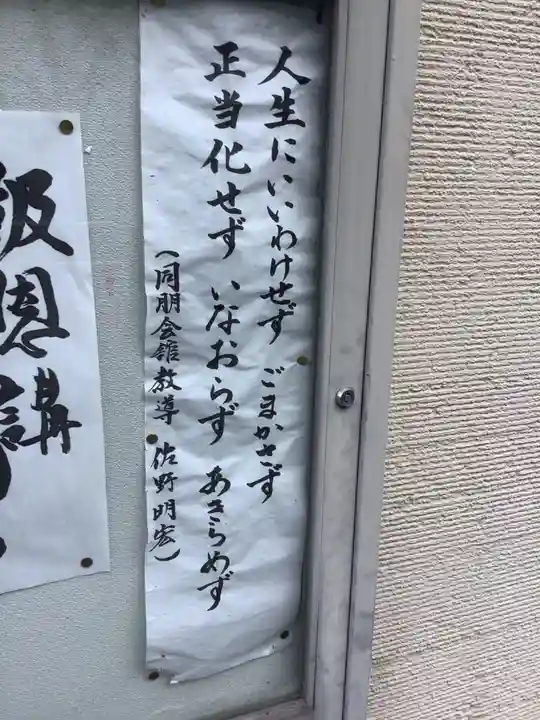 人生にいいわけせず ごまかさず
正当化せず いなおらず あきらめず
(同朋会館教導 佐野明宏)
報恩講